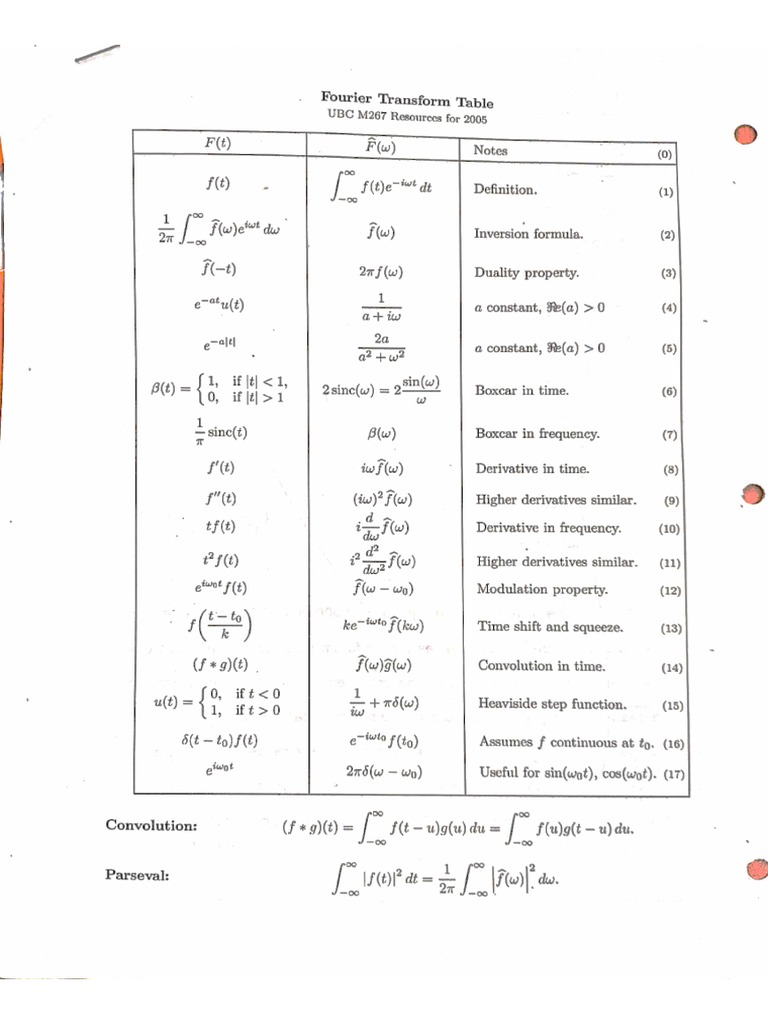 Fourier Transform Table
UBC M267 Resources for 2005
F(t) F̂(ω) Notes (0)
f(t) ∫_{-∞}^{∞} f(t)e^{-iωt} dt Definition. (1)
1/2π ∫_{-∞}^{∞} f̂(ω)e^{iωt} dω f̂(ω) Inversion formula. (2)
f̂(-t) 2πf(ω) Duality property. (3)
e^{-at}u(t) 1/(a + iω) a constant, ℜe(a) > 0 (4)
e^{-a|t|} 2a/(a² + ω²) a constant, ℜe(a) > 0 (5)
β(t) = { 1, if |t| < 1, 0, if |t| > 1 2 sinc(ω) = 2 sin(ω)/ω Boxcar in time. (6)
1/π sinc(t) β(ω) Boxcar in frequency. (7)
f′(t) iωf̂(ω) Derivative in time. (8)
f″(t) (iω)²f̂(ω) Higher derivatives similar. (9)
tf(t) i d/dω f̂(ω) Derivative in frequency. (10)
t²f(t) i² d²/dω² f̂(ω) Higher derivatives similar. (11)
e^{iω₀t}f(t) f̂(ω − ω₀) Modulation property. (12)
f((t − t₀)/k) ke^{-iωt₀}f̂(kω) Time shift and squeeze. (13)
(f * g)(t) f̂(ω)ĝ(ω) Convolution in time. (14)
u(t) = { 0, if t < 0 1, if t > 0 1/iω + πδ(ω) Heaviside step function. (15)
δ(t − t₀)f(t) e^{-iωt₀}f(t₀) Assumes f continuous at t₀. (16)
e^{iω₀t} 2πδ(ω − ω₀) Useful for sin(ω₀t), cos(ω₀t). (17)
Convolution: (f * g)(t) = ∫_{-∞}^{∞} f(t − u)g(u) du = ∫_{-∞}^{∞} f(u)g(t − u) du.
Parseval: ∫_{-∞}^{∞} |f(t)|² dt = 1/2π ∫_{-∞}^{∞} |f̂(ω)|² dω.